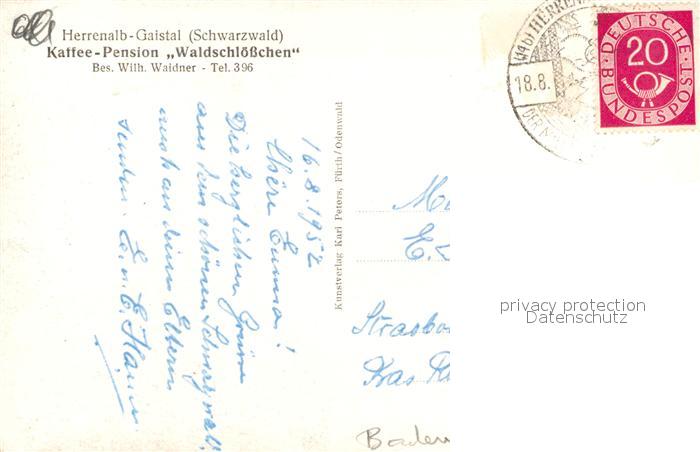 Herrenalb-Gaistal (Schwarzwald)
Kaffee-Pension „Waldschlößchen"
Bes. Wilh. Waidner - Tel. 396
16.8.1952
Chère Emma!
Die herzlichen Grüsse
aus dem schönen Schwarzwald
auch an deine Eltern
senden E. u. E.
Kunstverlag Karl Peters, Fürth/Odenwald
(14b) HERREN
18.8.
DEUTSCHE
BUNDESPOST
20
Strasbo
Baden
privacy protection
Datenschutz